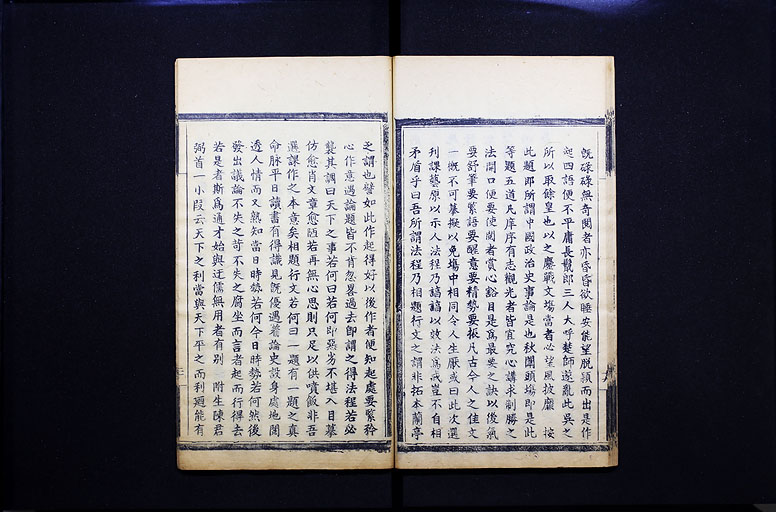 旣碌碌無奇閱者亦昏昏欲睡安能望脫穎而出是作
起四語便不平庸長鬣郎三人大呼楚師遂亂此吳之
所以取餘皇也以之鏖戰文場當者必望風披靡 按
此題即所謂中國政治史事論是也秋闈頭場即是此
等題五道凡庠序有志觀光者皆宜究心講求制勝之
法開口便要使閱者賞心豁目是爲最要之訣以後氣
要舒筆要緊語要醒意要精勢要振凡古今人之佳文
一概不可摹擬以免塲中相同令人生厭或曰此次選
刊課藝原以示人法程乃諄諄以效法爲戒豈不自相
矛盾乎曰吾所謂法程乃相題行文之謂非拓本蘭亭
之謂也譬如此作起得好以後作者便知起處要緊矜
心作意遇論題皆不肯忽畧過去即謂之得法程若必
襲其調曰天下之事若何曰若何即惡劣不堪入目摹
仿愈肖文章愈陋若再無心思則只足以供噴飯非吾
選課作之本意矣相題行文若何曰一題有一題之真
命脉平日讀書有得識見旣優遇着論史設身處地閱
透人情而又熟知當日時勢若何今日時勢若何然後
發出議論不失之苛不失之腐坐而言者起而行得去
若是者斯爲通才始與迂儒無用者有別 附生陳君
弼首一小段云天下之利當與天下平之而利廼能有